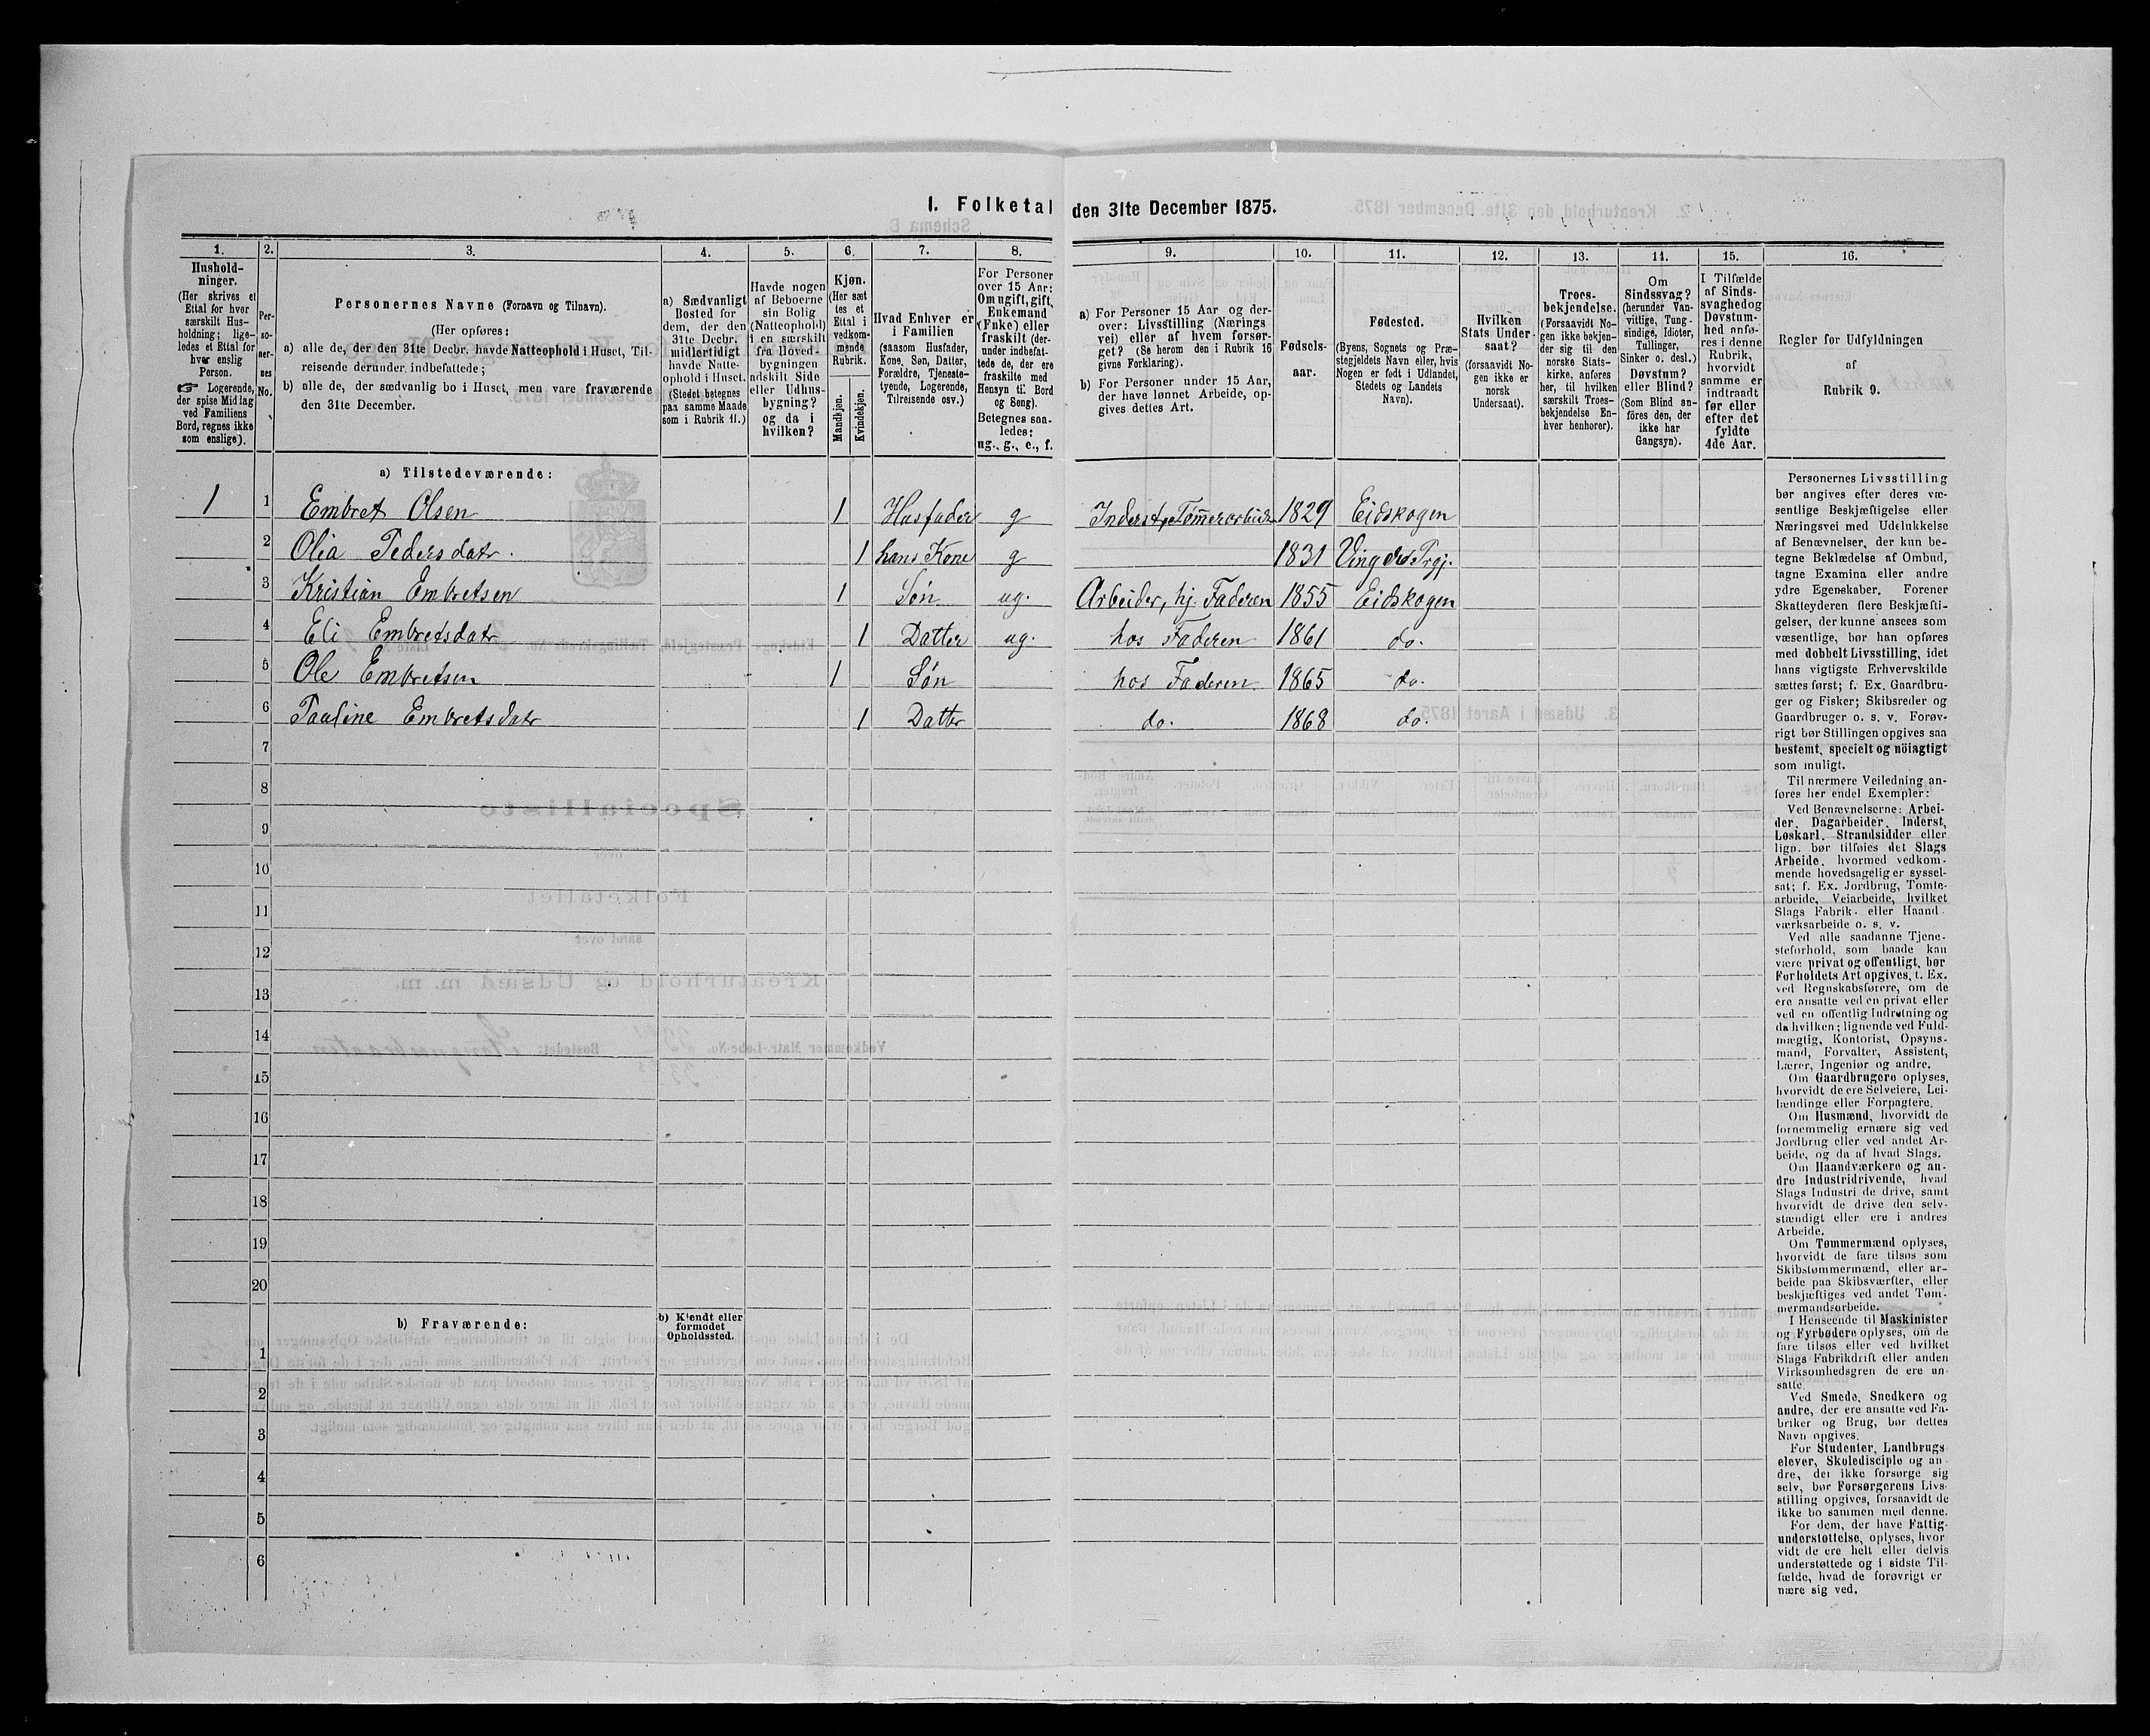 I. Folketal den 31te December 1875.
1. 2. 3. 4. 5. 6. 7. 8. 9. 10. 11. 12. 13. 14. 15. 16.
Hushold-
ninger.
(Her skrives et
Ettal for hver
særskilt Hus-
holdning; lige-
ledes et Ettal for
hver enslig
Person.
☞ Logerende,
der spise Middag
ved Familiens
Bord, regnes ikke
som enslige).
Per-
so-
ner-
nes
No.
Personernes Navne (Fornavn og Tilnavn).
(Her opføres:
a) alle de, der den 31te Decbr. havde Natteophold i Huset, Til-
reisende derunder indbefattede;
b) alle de, der sædvanlig bo i Huset, men vare fraværende
den 31te December.
a) Sædvanligt
Bosted for
dem, der den
31te Decbr.
midlertidigt
havde Natte-
ophold i Huset.
(Stedet betegnes
paa samme Maade
som i Rubrik 11.)
Havde nogen
af Beboerne
sin Bolig
(Natteophold)
i en særskilt
fra Hoved-
bygningen
adskilt Side
eller Udhus-
bygning?
og da i
hvilken?
Kjøn.
(Her sæt
tes et
Ettal i
vedkom-
mende
Rubrik.
Mandkjøn.
Kvindekjøn.
Hvad Enhver er
i Familien
(saasom Husfader,
Kone, Søn, Datter,
Forældre, Tjeneste-
tyende, Logerende,
Tilreisende osv.)
For Personer
over 15 Aar:
Om ugift, gift,
Enkemand
(Enke) eller
fraskilt (der-
under indbefat-
tede de, der ere
fraskilte med
Hensyn til Bord
og Seng).
Betegnes saa-
ledes:
ug., g., e., f.
a) For Personer 15 Aar og der-
over: Livsstilling (Nærings
vei) eller af hvem forsør-
get? (Se herom den i Rubrik 16
givne Forklaring).
b) For Personer under 15 Aar,
der have lønnet Arbeide, op-
gives dettes Art.
Fødsels-
aar.
Fødested.
(Byens, Sognets og Præ-
stegjeldets Navn eller, hvis
Nogen er født i Udlandet,
Stedets og Landets
Navn).
Hvilken
Stats Under-
saat?
(forsaavidt No-
gen ikke er
norsk
Undersaat).
Troes-
bekjendelse.
(Forsaavidt No-
gen ikke bekjen-
der sig til den
norske Stats-
kirke, anføres
her, til hvilken
særskilt Troes-
bekjendelse En-
hver henhører).
Om
Sindssvag?
(herunder Van-
vittige, Tung-
sindige, Idioter,
Tullinger,
Sinker o. desl.)
Døvstum?
eller Blind?
(Som Blind an-
føres den, der
ikke har
Gangsyn).
I Tilfælde
af Sinds-
svaghed og
Døvstum-
hed anfø-
res i denne
Rubrik,
hvorvidt
samme er
indtraadt
før eller
efter det
fyldte
4de Aar.
Regler for Udfyldningen
af
Rubrik 9.
a) Tilstedeværende:
1 1 Embret Olsen 1 Husfader g Inderst, Tømmerarbeider 1829 Eidskogen
2 Olia Pedersdatr. 1 hans Kone g 1831 Vinger Prgj.
3 Kristian Embretsen 1 Søn ug. Arbeider, hj. Faderen 1855 Eidskogen
4 Eli Embretsdatr 1 Datter ug. hos Faderen 1861 do.
5 Ole Embretsen 1 Søn hos Faderen 1865 do.
6 Pauline Embretsdatr 1 Datter do. 1868 do.
7
8
9
10
11
12
13
14
15
16
17
18
19
20
b) Fraværende:
b) Kjendt eller
formodet
Opholdssted.
1
2
3
4
5
6
Personernes Livsstilling
bør angives efter deres væ-
sentlige Beskjæftigelse eller
Næringsvei med Udelukkelse
af Benævnelser, der kun be-
tegne Beklædelse af Ombud,
tagne Examina eller andre
ydre Egenskaber. Forener
Skatteyderen flere Beskjæfti-
gelser, der kunne ansees som
væsentlige, bør han opføres
med dobbelt Livsstilling, idet
hans vigtigste Erhvervskilde
sættes først; f. Ex. Gaardbru-
ger og Fisker; Skibsreder og
Gaardbruger o. s. v. Forøv-
rigt bør Stillingen opgives saa
bestemt, specielt og nöiagtigt
som muligt.
Til nærmere Veiledning an-
føres her endel Exempler:
Ved Benævnelserne: Arbei-
der, Dagarbeider, Inderst,
Løskarl, Strandsidder eller
lign. bør tilføies det Slags
Arbeide, hvormed vedkom-
mende hovedsagelig er syssel-
sat; f. Ex. Jordbrug, Tomte-
arbeide, Veiarbeide, hvilket
Slags Fabrik- eller Haand-
værksarbeide o. s. v.
Ved alle saadanne Tjene-
steforhold, som baade kan
være privat og offentligt, bør
Forholdets Art opgives, t. Ex.
ved Regnskabsførere, om de
ere ansatte ved en privat eller
ved en offentlig Indretning og
da hvilken; lignende ved Fuld-
mægtig, Kontorist, Opsyns-
mand, Forvalter, Assistent,
Lærer, Ingeniør og andre.
Om Gaardbrugere oplyses,
hvorvidt de ere Selveiere, Lei-
lændinge eller Forpagtere.
Om Husmænd, hvorvidt de
fornemmelig ernære sig ved
Jordbrug eller ved andet Ar-
beide, og da af hvad Slags.
Om Haandværkere og an-
dre Industridrivende, hvad
Slags Industri de drive, samt
hvorvidt de drive den selv-
stændigt eller ere i andres
Arbeide.
Om Tømmermænd oplyses,
hvorvidt de fare tilsøs som
Skibstømmermænd, eller ar-
beide paa Skibsværfter, eller
beskjæftiges ved andet Tøm-
mermandsarbeide.
I Henseende til Maskinister
og Fyrbødere oplyses, om de
fare tilsøs eller ved hvilket
Slags Fabrikdrift eller anden
Virksomhedsgren de ere an-
satte.
Ved Smede, Snedkere og
andre, der ere ansatte ved Fa-
briker og Brug, bør dettes
Navn opgives.
For Studenter, Landbrugs
elever, Skoledisciple og an-
dre, der ikke forsørge sig
selv, bør Forsørgerens Livs-
stilling opgives, forsaavidt de
ikke bo sammen med denne.
For dem, der have Fattig-
understøttelse, oplyses, hvor-
vidt de ere helt eller delvis
understøttede og i sidste Til-
fælde, hvad de forøvrigt er
nære sig ved.